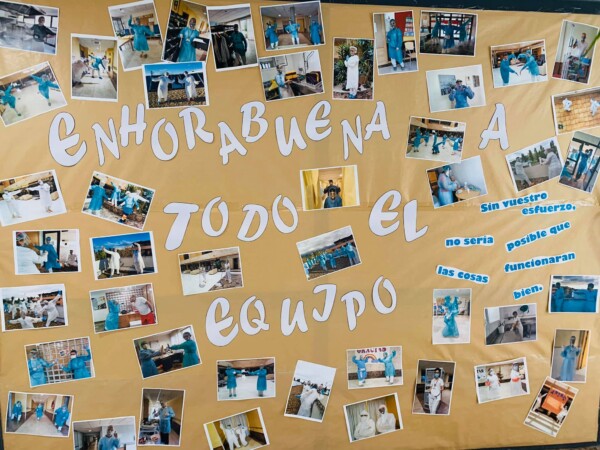 ENHORABUENA A
TODO EL
EQUIPO
Sin vuestro
esfuerzo,
no sería
posible que
las cosas
funcionaran
bien.
GRACIAS